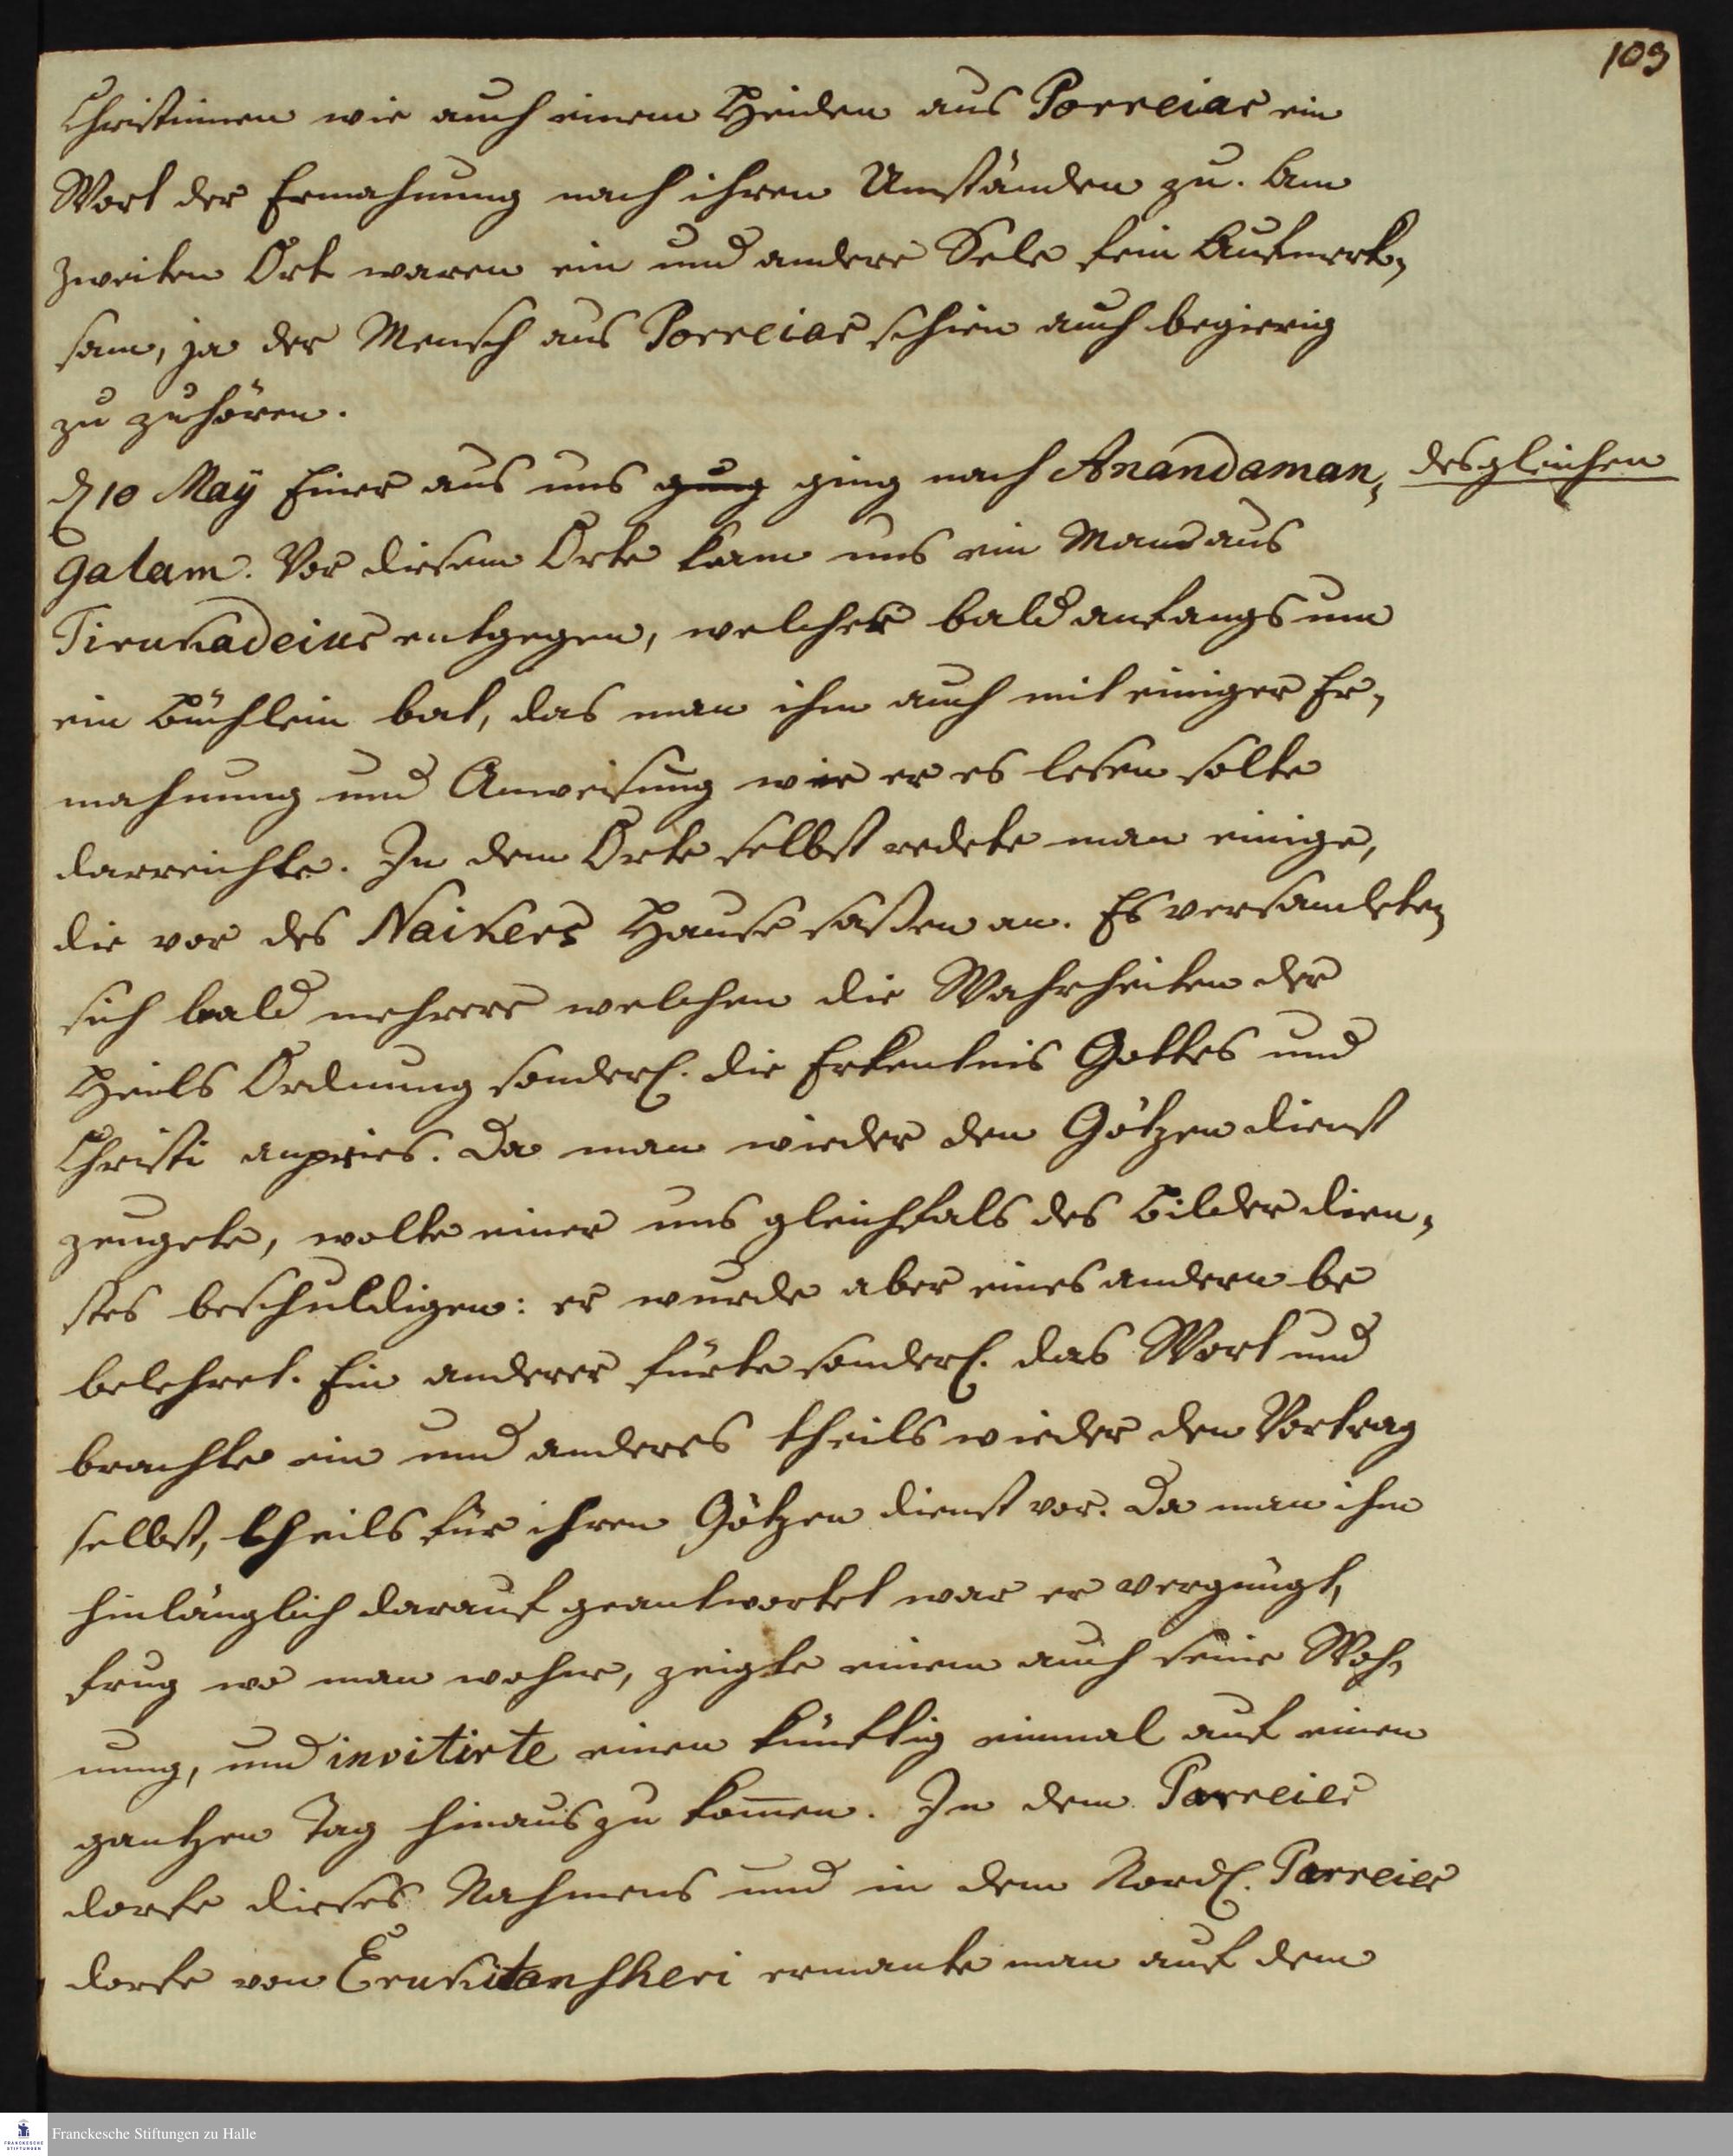 109
Christinnen wie auch einem Heiden aus Porreiar ein
Wort der Ermahnung nach ihren Umständen zu. Am
zweiten Ort waren ein und andere Sele fein Aufmerk-
sam, ja der Mensch aus Porreiar schien auch begierig
zu zuhören.
d 10 May Einer aus uns gung ging nach Anandaman-
desgleichen
galam. Vor diesem Orte kam uns ein Man aus
Tirukadeiur entgegen, welcher bald anfangs um
ein Büchlein bat, das man ihm auch mit einiger Er-
mahnung und Anweisung wie er es lesen solte
darreichte. In dem Orte selbst redete man einige,
die vor des Naikers Hause saßen an. Es versamleten
sich bald mehrere welchen die Wahrheiten der
Heils Ordnung sonderl. die Erkentnis Gottes und
Christi anpries. Da man wieder den Götzendienst
zeugete, wolte einer uns gleichfals des Bilderdien-
stes beschuldigen: er wurde aber eines andern be
belehret. Ein anderer fürte sonderl. das Wort und
brachte ein und anderes theils wieder den Vortrag
selbst, theils für ihren Götzendienst vor. Da man ihm
hinlänglich darauf geantwortet war er vergnügt,
frug wo man wohne, zeigte einem auch seine Woh-
nung, und invitirte einen künftig einmal auf einen
gantzen Tag hinaus zu kom̄en. In dem Parreier
dorfe dieses Nahmens und in dem Nordl. Parreier
dorfe von Erukitanscheri ermante man auf dem
Franckesche Stiftungen zu Halle